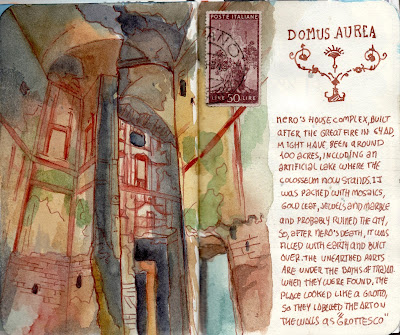 POSTE ITALIANE
LIRE 50 LIRE
DOMUS AUREA
NERO'S HOUSE COMPLEX, BUILT
AFTER THE GREAT FIRE IN 64 AD,
MIGHT HAVE BEEN AROUND
100 ACRES, INCLUDING AN
ARTIFICIAL LAKE WHERE THE
COLOSSEUM NOW STANDS. IT
WAS PACKED WITH MOSAICS,
GOLD LEAF, JEWELS AND MARBLE
AND PROBABLY RUINED THE CITY,
SO, AFTER NERO'S DEATH, IT WAS
FILLED WITH EARTH AND BUILT
OVER. THE UNEARTHED PARTS
ARE UNDER THE BATHS OF TRAJAN.
WHEN THEY WERE FOUND, THE
PLACE LOOKED LIKE A GROTTO,
SO THEY LABELLED THE ART ON
THE WALLS AS "GROTTESCO"